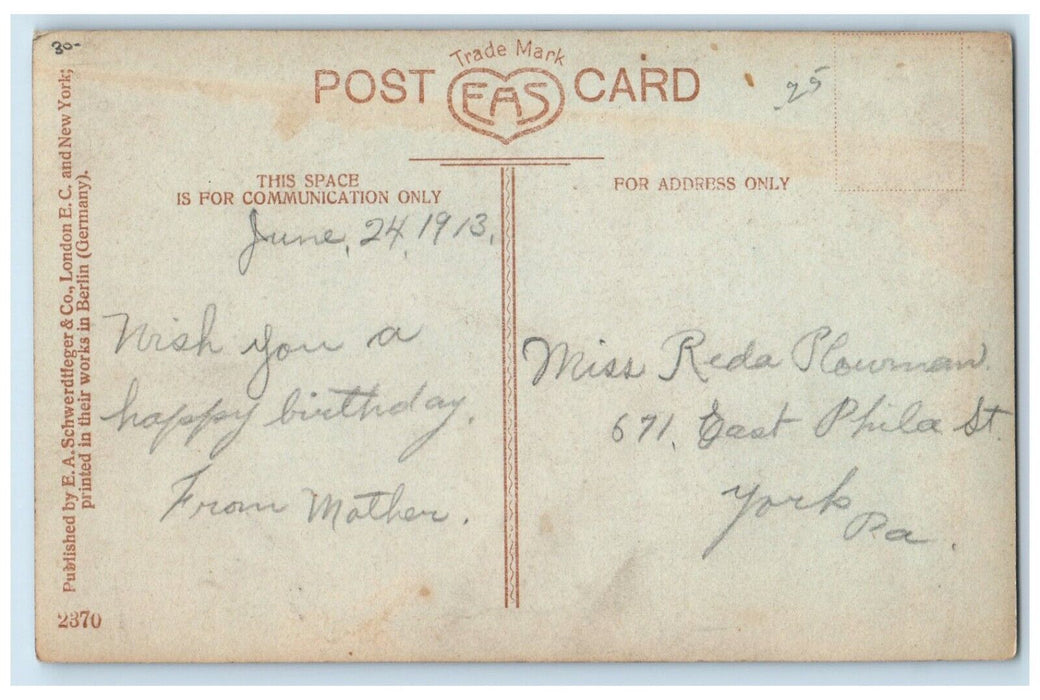 30-
Trade Mark
POST EAS CARD
25
THIS SPACE
IS FOR COMMUNICATION ONLY
FOR ADDRESS ONLY
June, 24, 1913.
Wish you a
happy birthday.
From Mother.
Miss Reda Plowman
671, East Phila St.
York
Pa.
Published by E. A. Schwerdtfeger & Co., London E. C. and New York;
printed in their works in Berlin (Germany).
2370